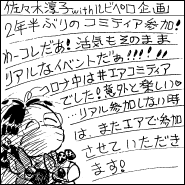 佐々木淳子withルビペロ企画
2年半ぶりのコミティア参加!
わーコレだぁ!活気もそのまま
リアルなイベントだぁ!!!!
コロナ中は#エアコミティア
でした!意外と楽しい♡
…リアル参加しない時
は、またエアで参加
させていただき
ます!